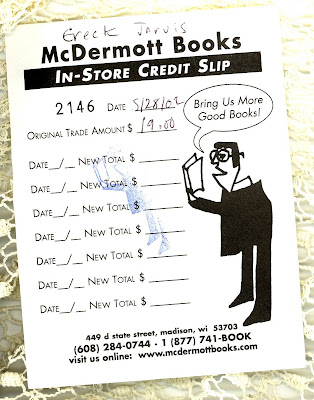 Ereck Jarvis
McDermott Books
In-Store Credit Slip
2146 Date 5/28/02
Original Trade Amount $ 19.00
Bring Us More
Good Books!
Date__/__ New Total $
Date__/__ New Total $
Date__/__ New Total $
Date__/__ New Total $
Date__/__ New Total $
Date__/__ New Total $
Date__/__ New Total $
449 d state street, madison, wi 53703
(608) 284-0744 · 1 (877) 741-BOOK
visit us online: www.mcdermottbooks.com